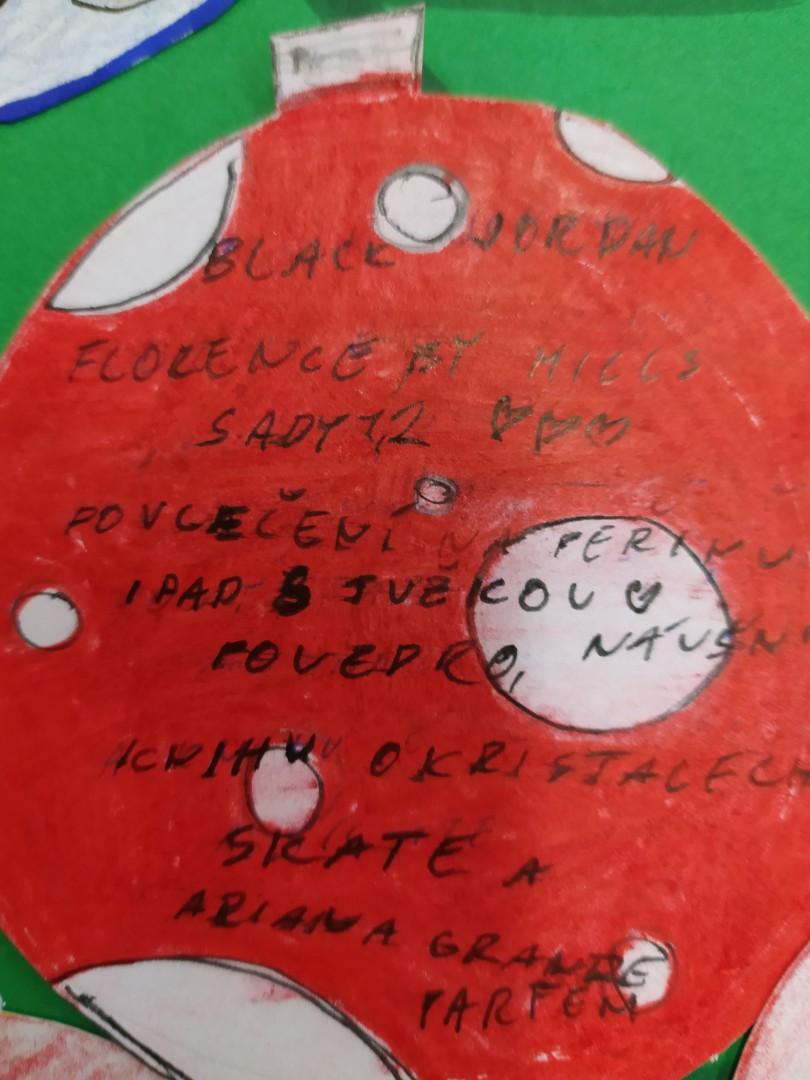 BLACK JORDAN
FLORENCE BY MILLS
SADY 1,2
POVLEČENÍ NA PEŘINU
IPAD S TUŽKOU
POVEDRO, NÁUŠN
KNIHU O KRISTALECH
SKATE A
ARIANA GRANDE
PARFÉM